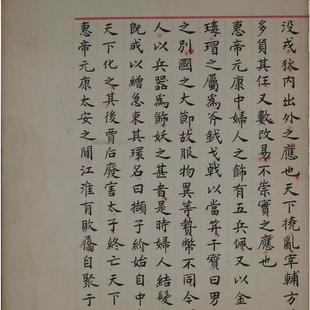 没戎狄內出外之應也天下撓亂宰輔方
多負其任又數改易不崇實之應也
惠帝元康中婦人之飾有五兵佩又以金
瑇瑁之屬為斧鉞戈戟以當筓干寶曰男
之別國之大節故服物異等贄幣不同今
人以兵器為飾妖之甚者是時婦人結髮
旣成以繒急束其環名曰擷子紒始自中
天下化之其後賈后廢害太子終亡天下
惠帝元康太安之間江淮有敗屩自聚于